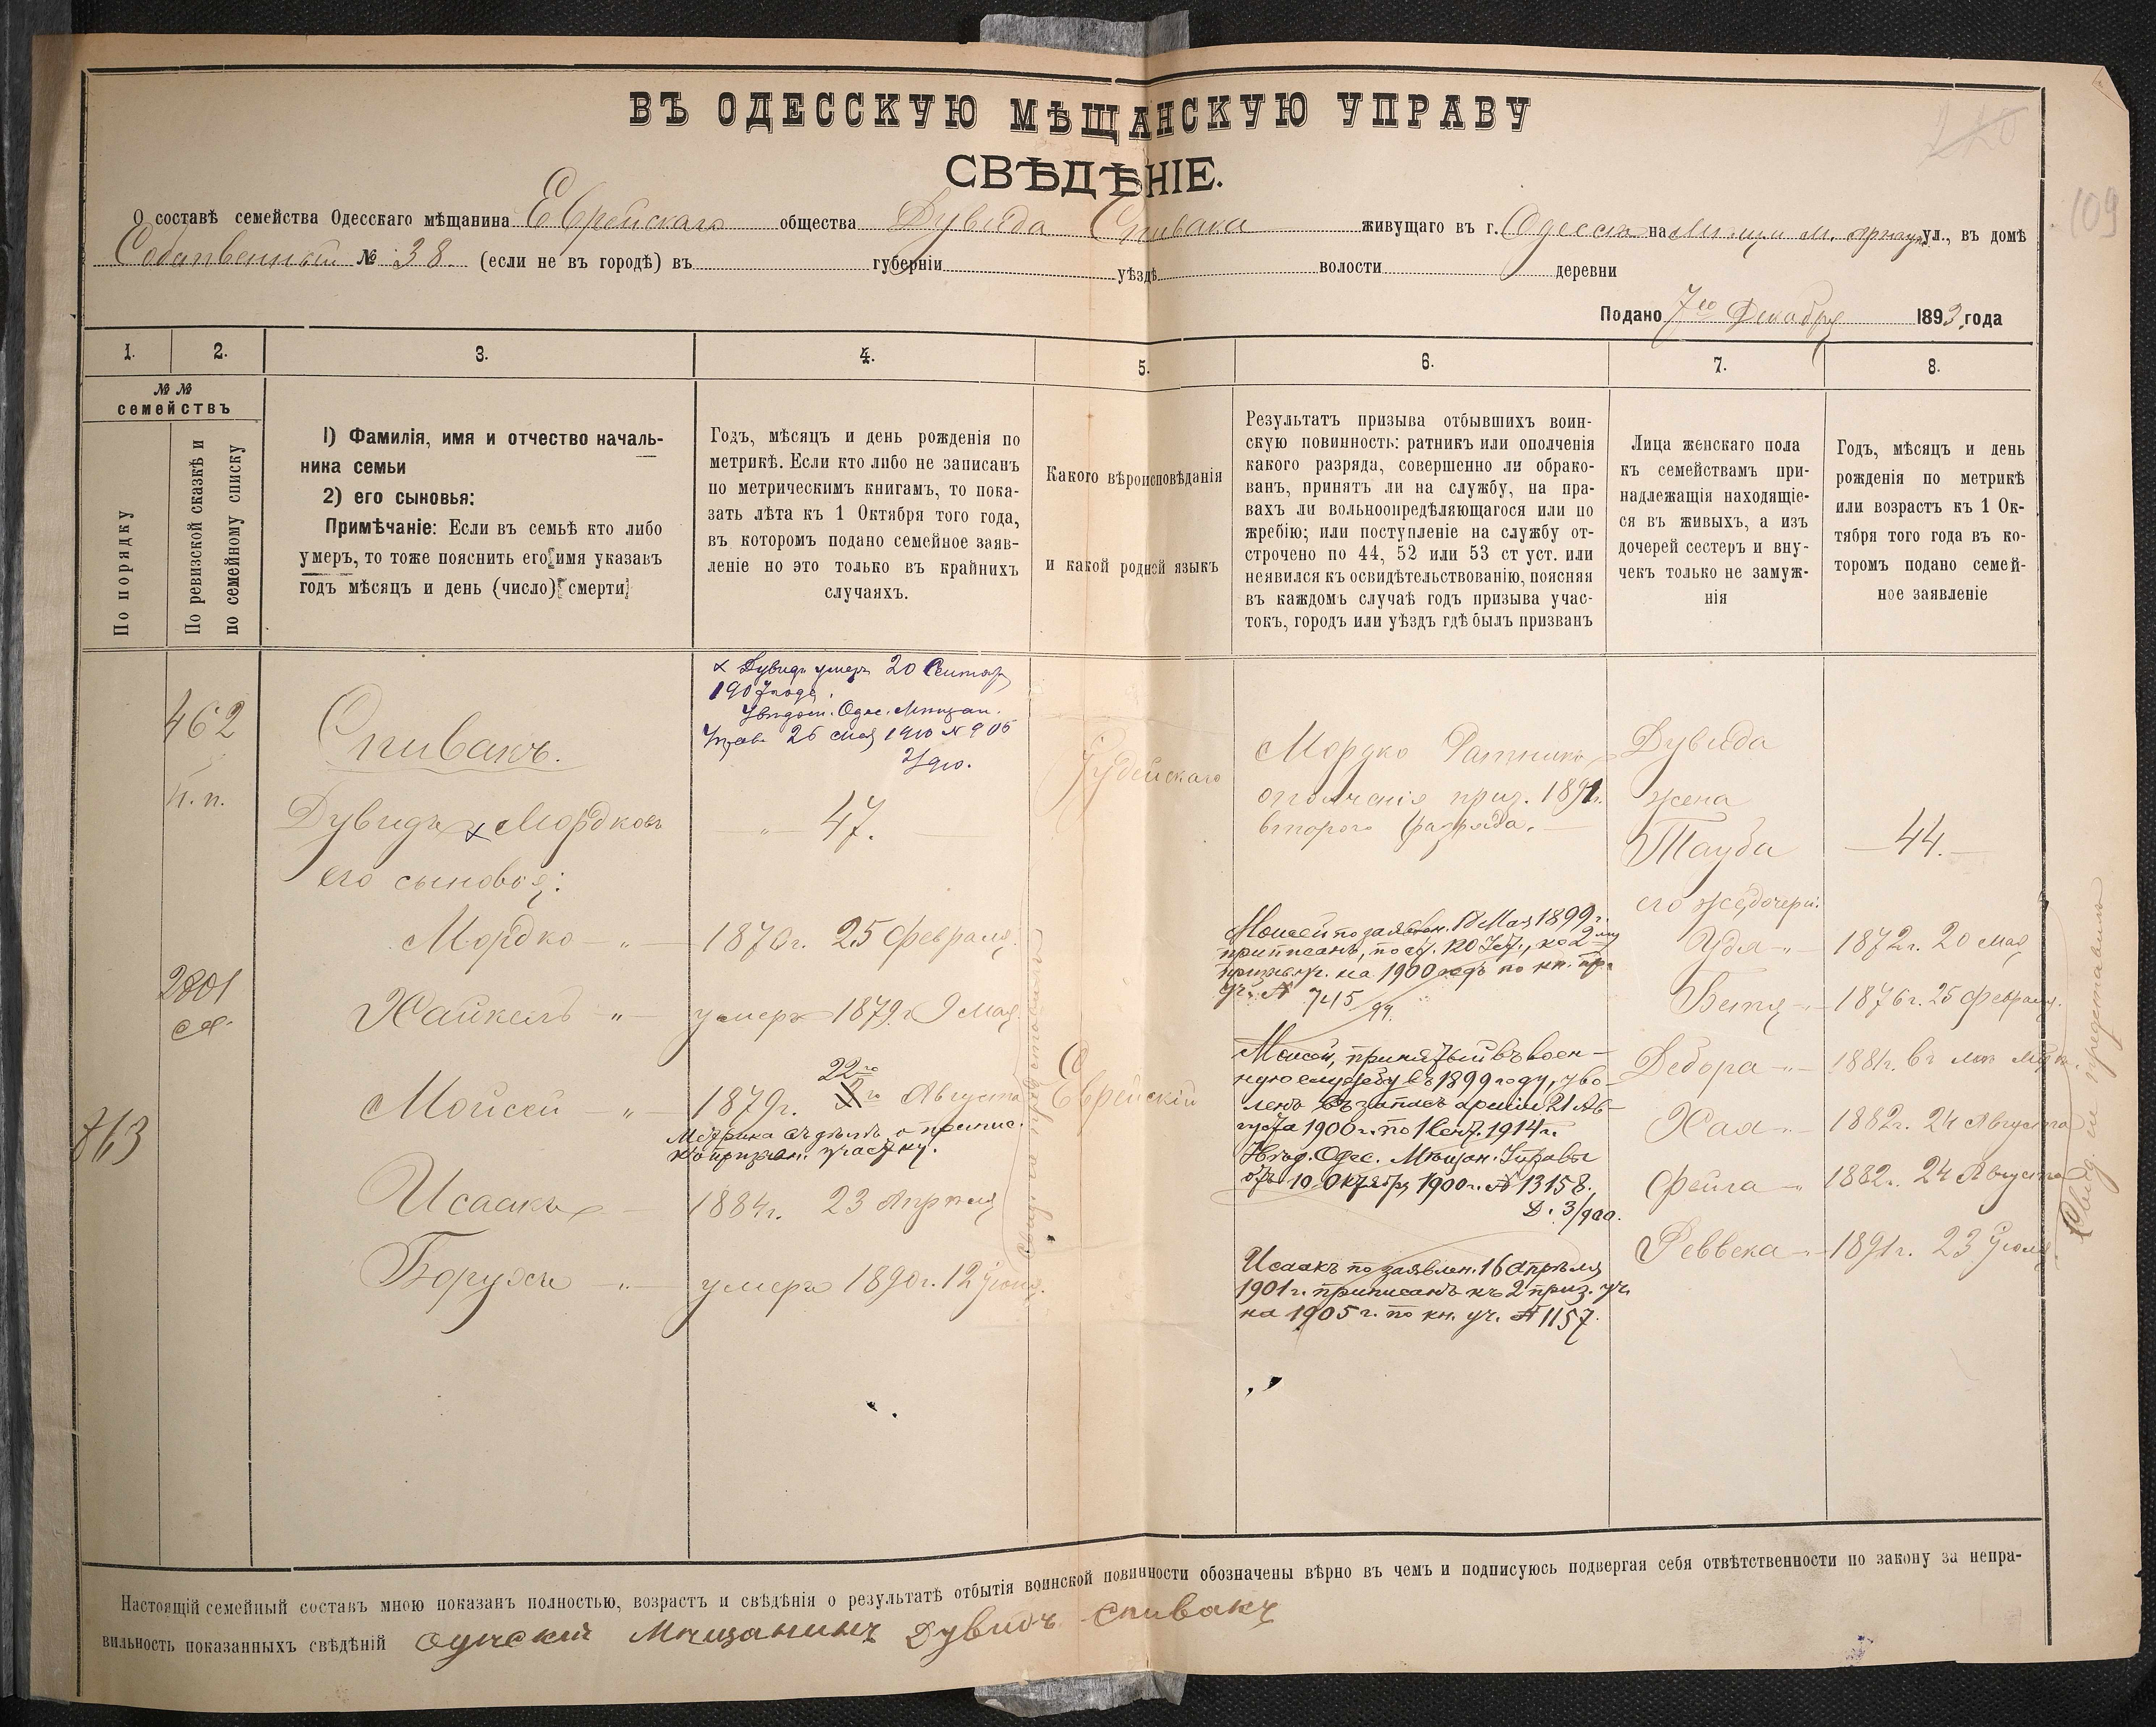 ВЪ ОДЕССКУЮ МѢЩАНСКУЮ УПРАВУ
СВѢДѢНІЕ.
О составѣ семейства Одесскаго мѣщанина Еврейскаго общества Дувида Спивака живущаго въ г. Одессѣ на М. ул., въ домѣ
Собственный № 38 (если не въ городѣ) въ губерніи уѣздѣ волости деревни
Подано 7го Декабря 1893 года
1. 2. 3. 4. 5. 6. 7. 8.
№ №
семействъ
По порядку
По ревизской сказкѣ и
по семейному списку
1) Фамилія, имя и отчество началь-
ника семьи
2) его сыновья:
Примѣчаніе: Если въ семьѣ кто либо
умеръ, то тоже пояснить его имя указавъ
годъ мѣсяцъ и день (число) смерти
Годъ, мѣсяцъ и день рожденія по
метрикѣ. Если кто либо не записанъ
по метрическимъ книгамъ, то пока-
зать лѣта къ 1 Октября того года,
въ которомъ подано семейное заяв-
леніе но это только въ крайнихъ
случаяхъ.
Какого вѣроисповѣданія
и какой родной языкъ
Результатъ призыва отбывшихъ воин-
скую повинность: ратникъ или ополченія
какого разряда, совершенно ли обрако-
ванъ, принятъ ли на службу, на пра-
вахъ ли вольноопредѣляющагося или по
жребію; или поступленіе на службу от-
строчено по 44, 52 или 53 ст уст. или
неявился къ освидѣтельствованію, поясняя
въ каждомъ случаѣ годъ призыва учас-
токъ, городъ или уѣздъ гдѣ былъ призванъ
Лица женскаго пола
къ семействамъ при-
надлежащія находящіе-
ся въ живыхъ, а изъ
дочерей сестеръ и вну-
чекъ только не замуж-
нія
Годъ, мѣсяцъ и день
рожденія по метрикѣ
или возрастъ къ 1 Ок-
тября того года въ ко-
торомъ подано семей-
ное заявленіе
109
462
п. п.
2801
863
Спивакъ.
Дувидъ x Мордковъ
его сыновья:
Мордко — „ —
Хайкель „ —
Мойсей — „ —
Исаакъ —
Борухъ „ —
x Дувидъ умеръ 20 Сентяр
1907 года.
Увѣдом. Одес. Мѣщан.
Управ. 26 Мая 1910 № 906
— „ — 47. —
1870 г. 25 Февраля.
умеръ 1879 г. 9 Мая
22го
1879 г. Августа
Метрика съ дѣлѣ о припис.
къ призыв. участку.
1884 г. 23 Апрѣля
умеръ 1890 г. 12 Іюня.
Іудейскаго
Еврейскій
Мордко Ратникъ
ополченія приз. 1891 г.
второго разряда. —
Моисей по заявлен. 18 Мая 1899 г.
приписанъ, по ст. 120 Уст., ко 2му
призыв. уч. на 1900 годъ по кн. пр.
уч. № 745/99.
Моисей, принятый въ воен-
ную службу въ 1899 году, уво-
ленъ въ запасъ арміи 21 Ав-
густа 1900 г. по 1 Сент. 1914 г.
Увѣд. Одес. Мѣщан. Управы
отъ 10 Октября 1900 г. № 13158.
Д. 3/900.
Исаакъ по заявлен. 16 Апрѣля
1901 г. приписанъ къ 2 приз. уч.
на 1905 г. по кн. уч. № 1157.
Дувида
жена
Тауба
его же дочери:
Удя — „ —
Бетя — „ —
Дебора — „ —
Хая — „ —
Фейга — „
Реввека — „ —
— 44. —
1872 г. 20 Мая
1876 г. 25 Февраля.
1881 г.
1882 г. 24 Августа
1882 г. 24 Августа
1891 г. 23 Іюля
Свид. не представило
Настоящій семейный составъ мною показанъ полностью, возрастъ и свѣдѣнія о результатѣ отбытія воинской повинности обозначены вѣрно въ чемъ и подписуюсь подвергая себя отвѣтственности по закону за непра-
вильность показанныхъ свѣдѣній Мѣщанинъ Дувидъ Спивакъ